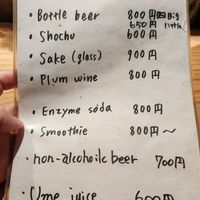 • Bottle beer 800円 Big
650円 little
• Shochu 600円
• Sake (glass) 900円
• Plum wine 800円
• Enzyme soda 800円
• Smoothie 800円〜
• non-alcohoilc beer 700円
Ume juice 600円